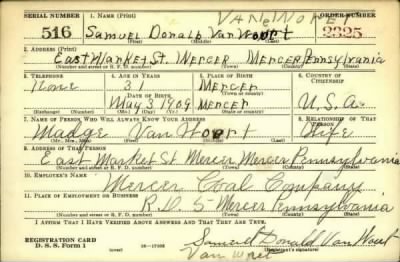 SERIAL NUMBER 1. NAME (Print) ORDER NUMBER
516 Samuel Donald Van Woert 2325
(First) (Middle) (Last)
2. ADDRESS (Print)
East Market St. Mercer Mercer Pennsylvania
(Number and street or R. F. D. number) (Town) (County) (State)
3. TELEPHONE 4. AGE IN YEARS 5. PLACE OF BIRTH 6. COUNTRY OF CITIZENSHIP
None 31 Mercer
DATE OF BIRTH
May 3 1909 Mercer U.S.A.
(Exchange) (Number) (Mo.) (Day) (Yr.) (Town or county) (State or country)
7. NAME OF PERSON WHO WILL ALWAYS KNOW YOUR ADDRESS 8. RELATIONSHIP OF THAT PERSON
Madge Van Woert Wife
(Mr., Mrs., Miss) (First) (Middle) (Last)
9. ADDRESS OF THAT PERSON
East Market St Mercer Mercer Pennsylvania
(Number and street or R. F. D. number) (Town) (County) (State)
10. EMPLOYER'S NAME
Mercer Coal Company
11. PLACE OF EMPLOYMENT OR BUSINESS
R.D. 5 - Mercer Pennsylvania
(Number and street or R. F. D. number) (Town) (County) (State)
I AFFIRM THAT I HAVE VERIFIED ABOVE ANSWERS AND THAT THEY ARE TRUE.
REGISTRATION CARD
D. S. S. Form 1 (over) Samuel Donald Van Woert
(Registrant's signature)